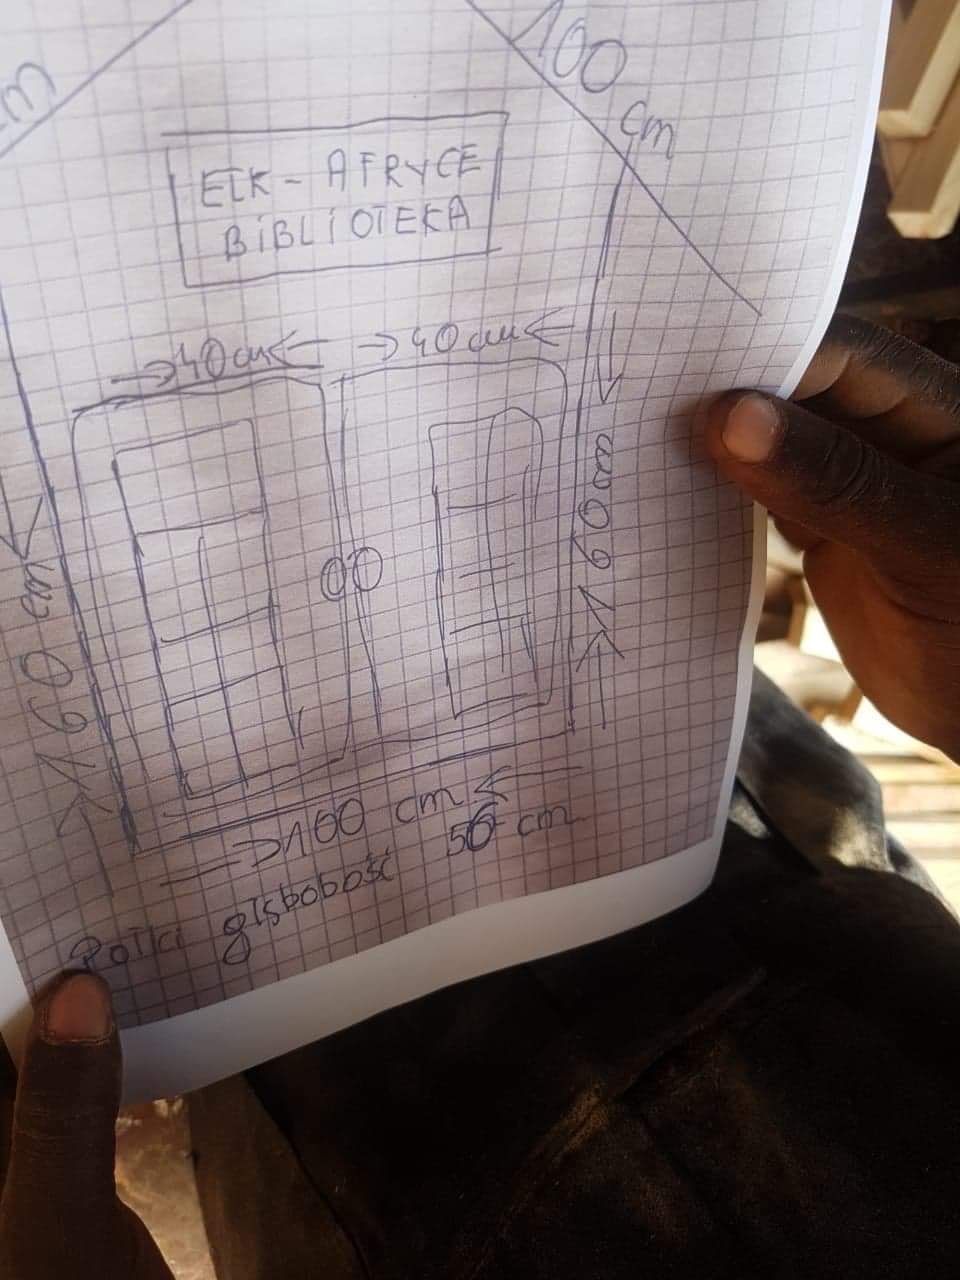 100 cm
m
EŁK - AFRYCE
BIBLIOTEKA
40 cm
40 cm
160 cm
160 cm
100 cm
Połki głębobość 50 cm